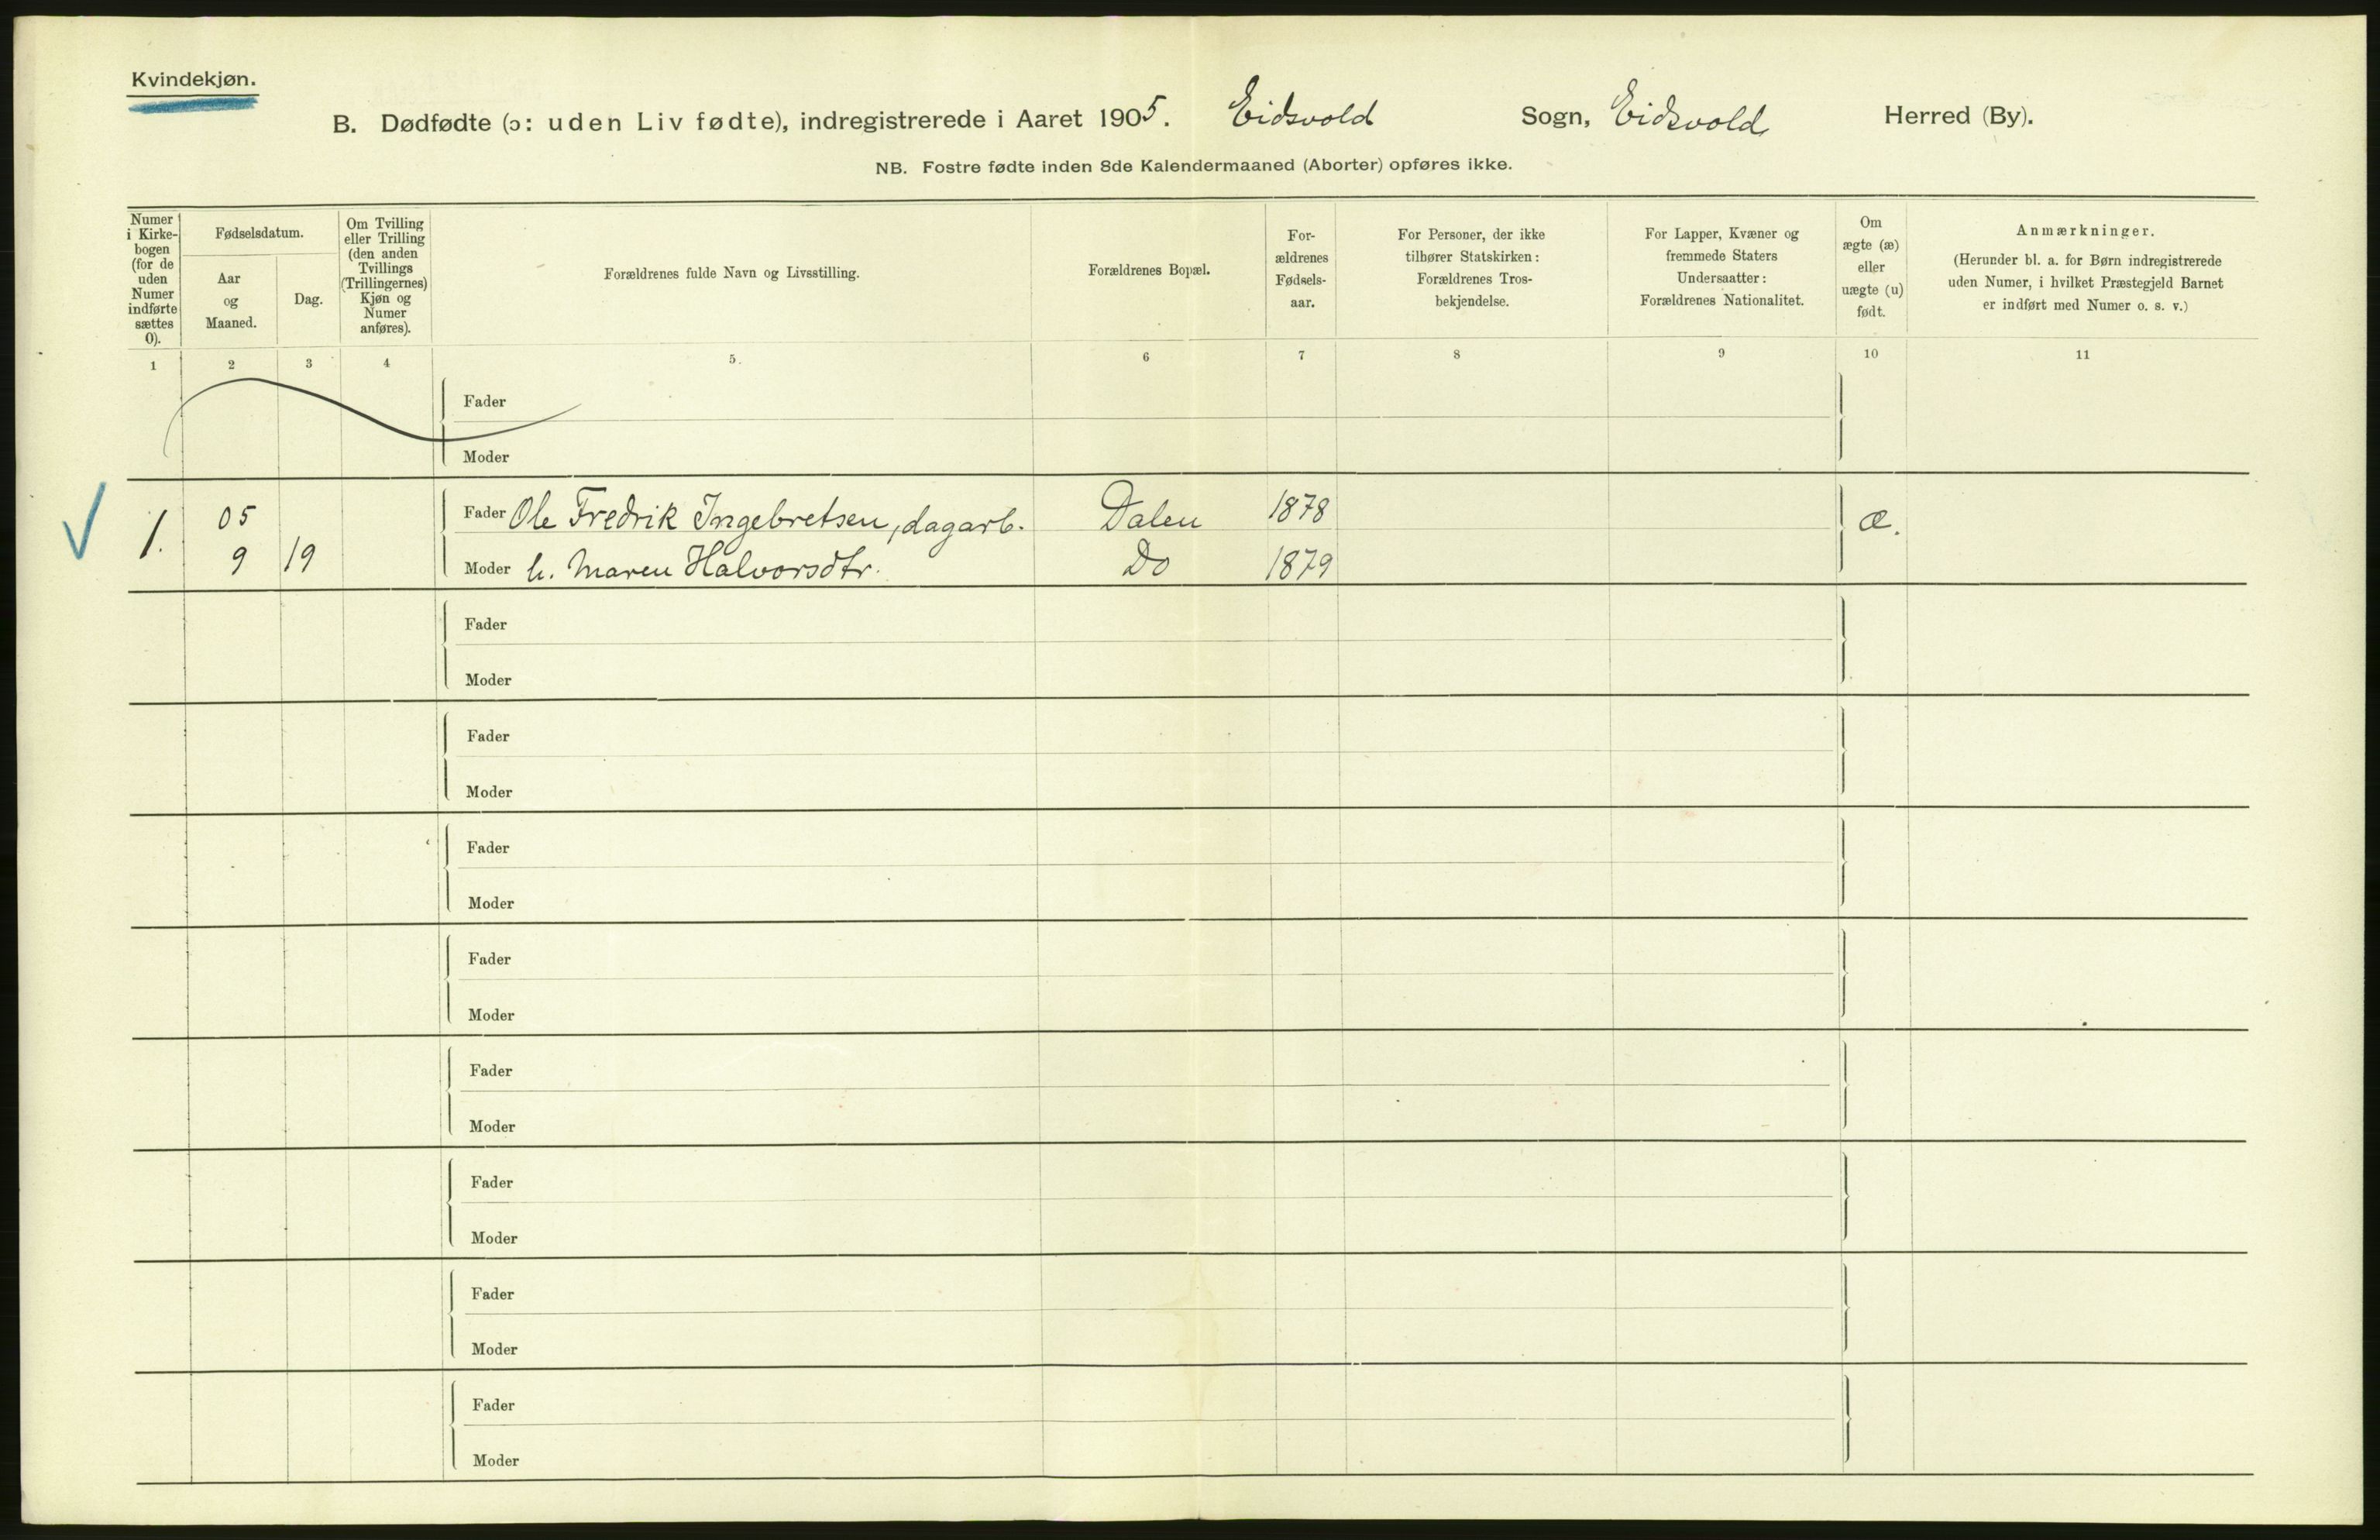 Kvindekjøn.
B. Dødfødte (ɔ: uden Liv fødte), indregistrerede i Aaret 1905. Eidsvold Sogn, Eidsvold Herred (By).
NB. Fostre fødte inden 8de Kalendermaaned (Aborter) opføres ikke.
Numer
i Kirke-
bogen
(for de
uden
Numer
indførte
sættes
0).
Fødselsdatum.
Aar
og
Maaned.
Dag.
Om Tvilling
eller Trilling
(den anden
Tvillings
(Trillingernes)
Kjøn og
Numer
anføres).
Forældrenes fulde Navn og Livsstilling.
Forældrenes Bopæl.
For-
ældrenes
Fødsels-
aar.
For Personer, der ikke
tilhører Statskirken:
Forældrenes Tros-
bekjendelse.
For Lapper, Kvæner og
fremmede Staters
Undersaatter:
Forældrenes Nationalitet.
Om
ægte (æ)
eller
uægte (u)
født.
Anmærkninger.
(Herunder bl. a. for Børn indregistrerede
uden Numer, i hvilket Præstegjeld Barnet
er indført med Numer o. s. v.)
1 2 3 4 5. 6 7 8 9 10 11
Fader
Moder
1. 05 Fader Ole Fredrik Ingebretsen, dagarb. Dalen 1878 æ.
9 19 Moder h. Maren Halvorsdtr. Do 1879
Fader
Moder
Fader
Moder
Fader
Moder
Fader
Moder
Fader
Moder
Fader
Moder
Fader
Moder
Fader
Moder